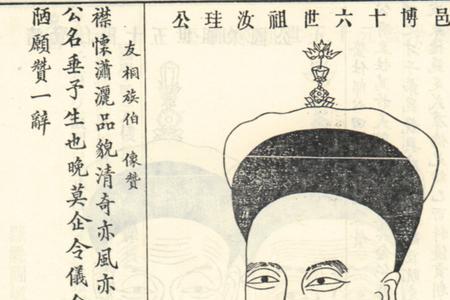 邑博十六世祖汝珪公
友相族伯 像贊
襟懷瀟灑品貌清奇亦風亦
公名垂予生也晚莫企令儀
陋願贊一辭